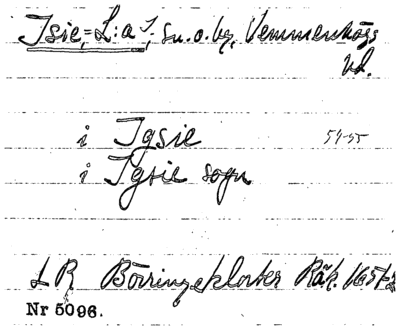 Isie, L:a S:, sn. o. by, Vemmenhögs
hd.
i Igsie 54-55
i Igsie sogn
LR Börringekloster Räk. 1654-5
Nr 5096.